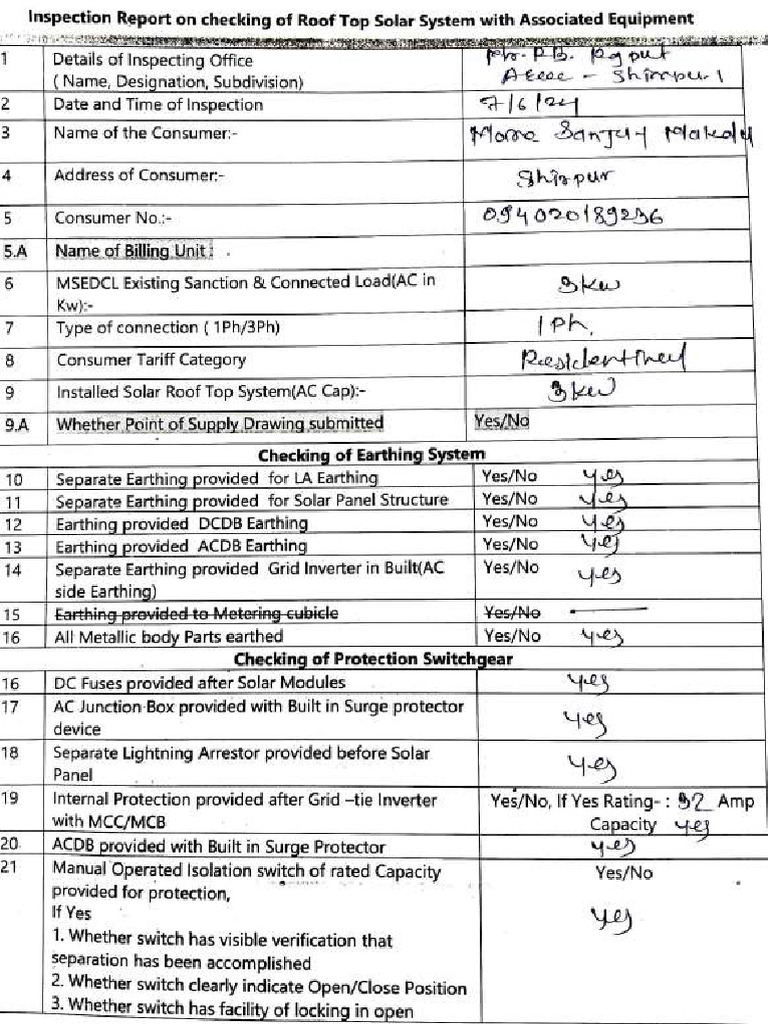 Inspection Report on checking of Roof Top Solar System with Associated Equipment
1 Details of Inspecting Office
( Name, Designation, Subdivision)
2 Date and Time of Inspection 7/6/24
3 Name of the Consumer:-
4 Address of Consumer:- Shirpur
5 Consumer No.:- 094020189236
5.A Name of Billing Unit :
6 MSEDCL Existing Sanction & Connected Load(AC in
Kw):- 3kw
7 Type of connection ( 1Ph/3Ph) 1Ph.
8 Consumer Tariff Category
9 Installed Solar Roof Top System(AC Cap):- 3kw
9.A Whether Point of Supply Drawing submitted Yes/No
Checking of Earthing System
10 Separate Earthing provided for LA Earthing Yes/No yes
11 Separate Earthing provided for Solar Panel Structure Yes/No yes
12 Earthing provided DCDB Earthing Yes/No yes
13 Earthing provided ACDB Earthing Yes/No yes
14 Separate Earthing provided Grid Inverter in Built(AC Yes/No yes
side Earthing)
15 Earthing provided to Metering cubicle Yes/No
16 All Metallic body Parts earthed Yes/No yes
Checking of Protection Switchgear
16 DC Fuses provided after Solar Modules yes
17 AC Junction Box provided with Built in Surge protector
device yes
18 Separate Lightning Arrestor provided before Solar
Panel yes
19 Internal Protection provided after Grid –tie Inverter Yes/No, If Yes Rating- : 32 Amp
with MCC/MCB Capacity yes
20 ACDB provided with Built in Surge Protector yes
21 Manual Operated Isolation switch of rated Capacity Yes/No
provided for protection,
If Yes yes
1. Whether switch has visible verification that
separation has been accomplished
2. Whether switch clearly indicate Open/Close Position
3. Whether switch has facility of locking in open